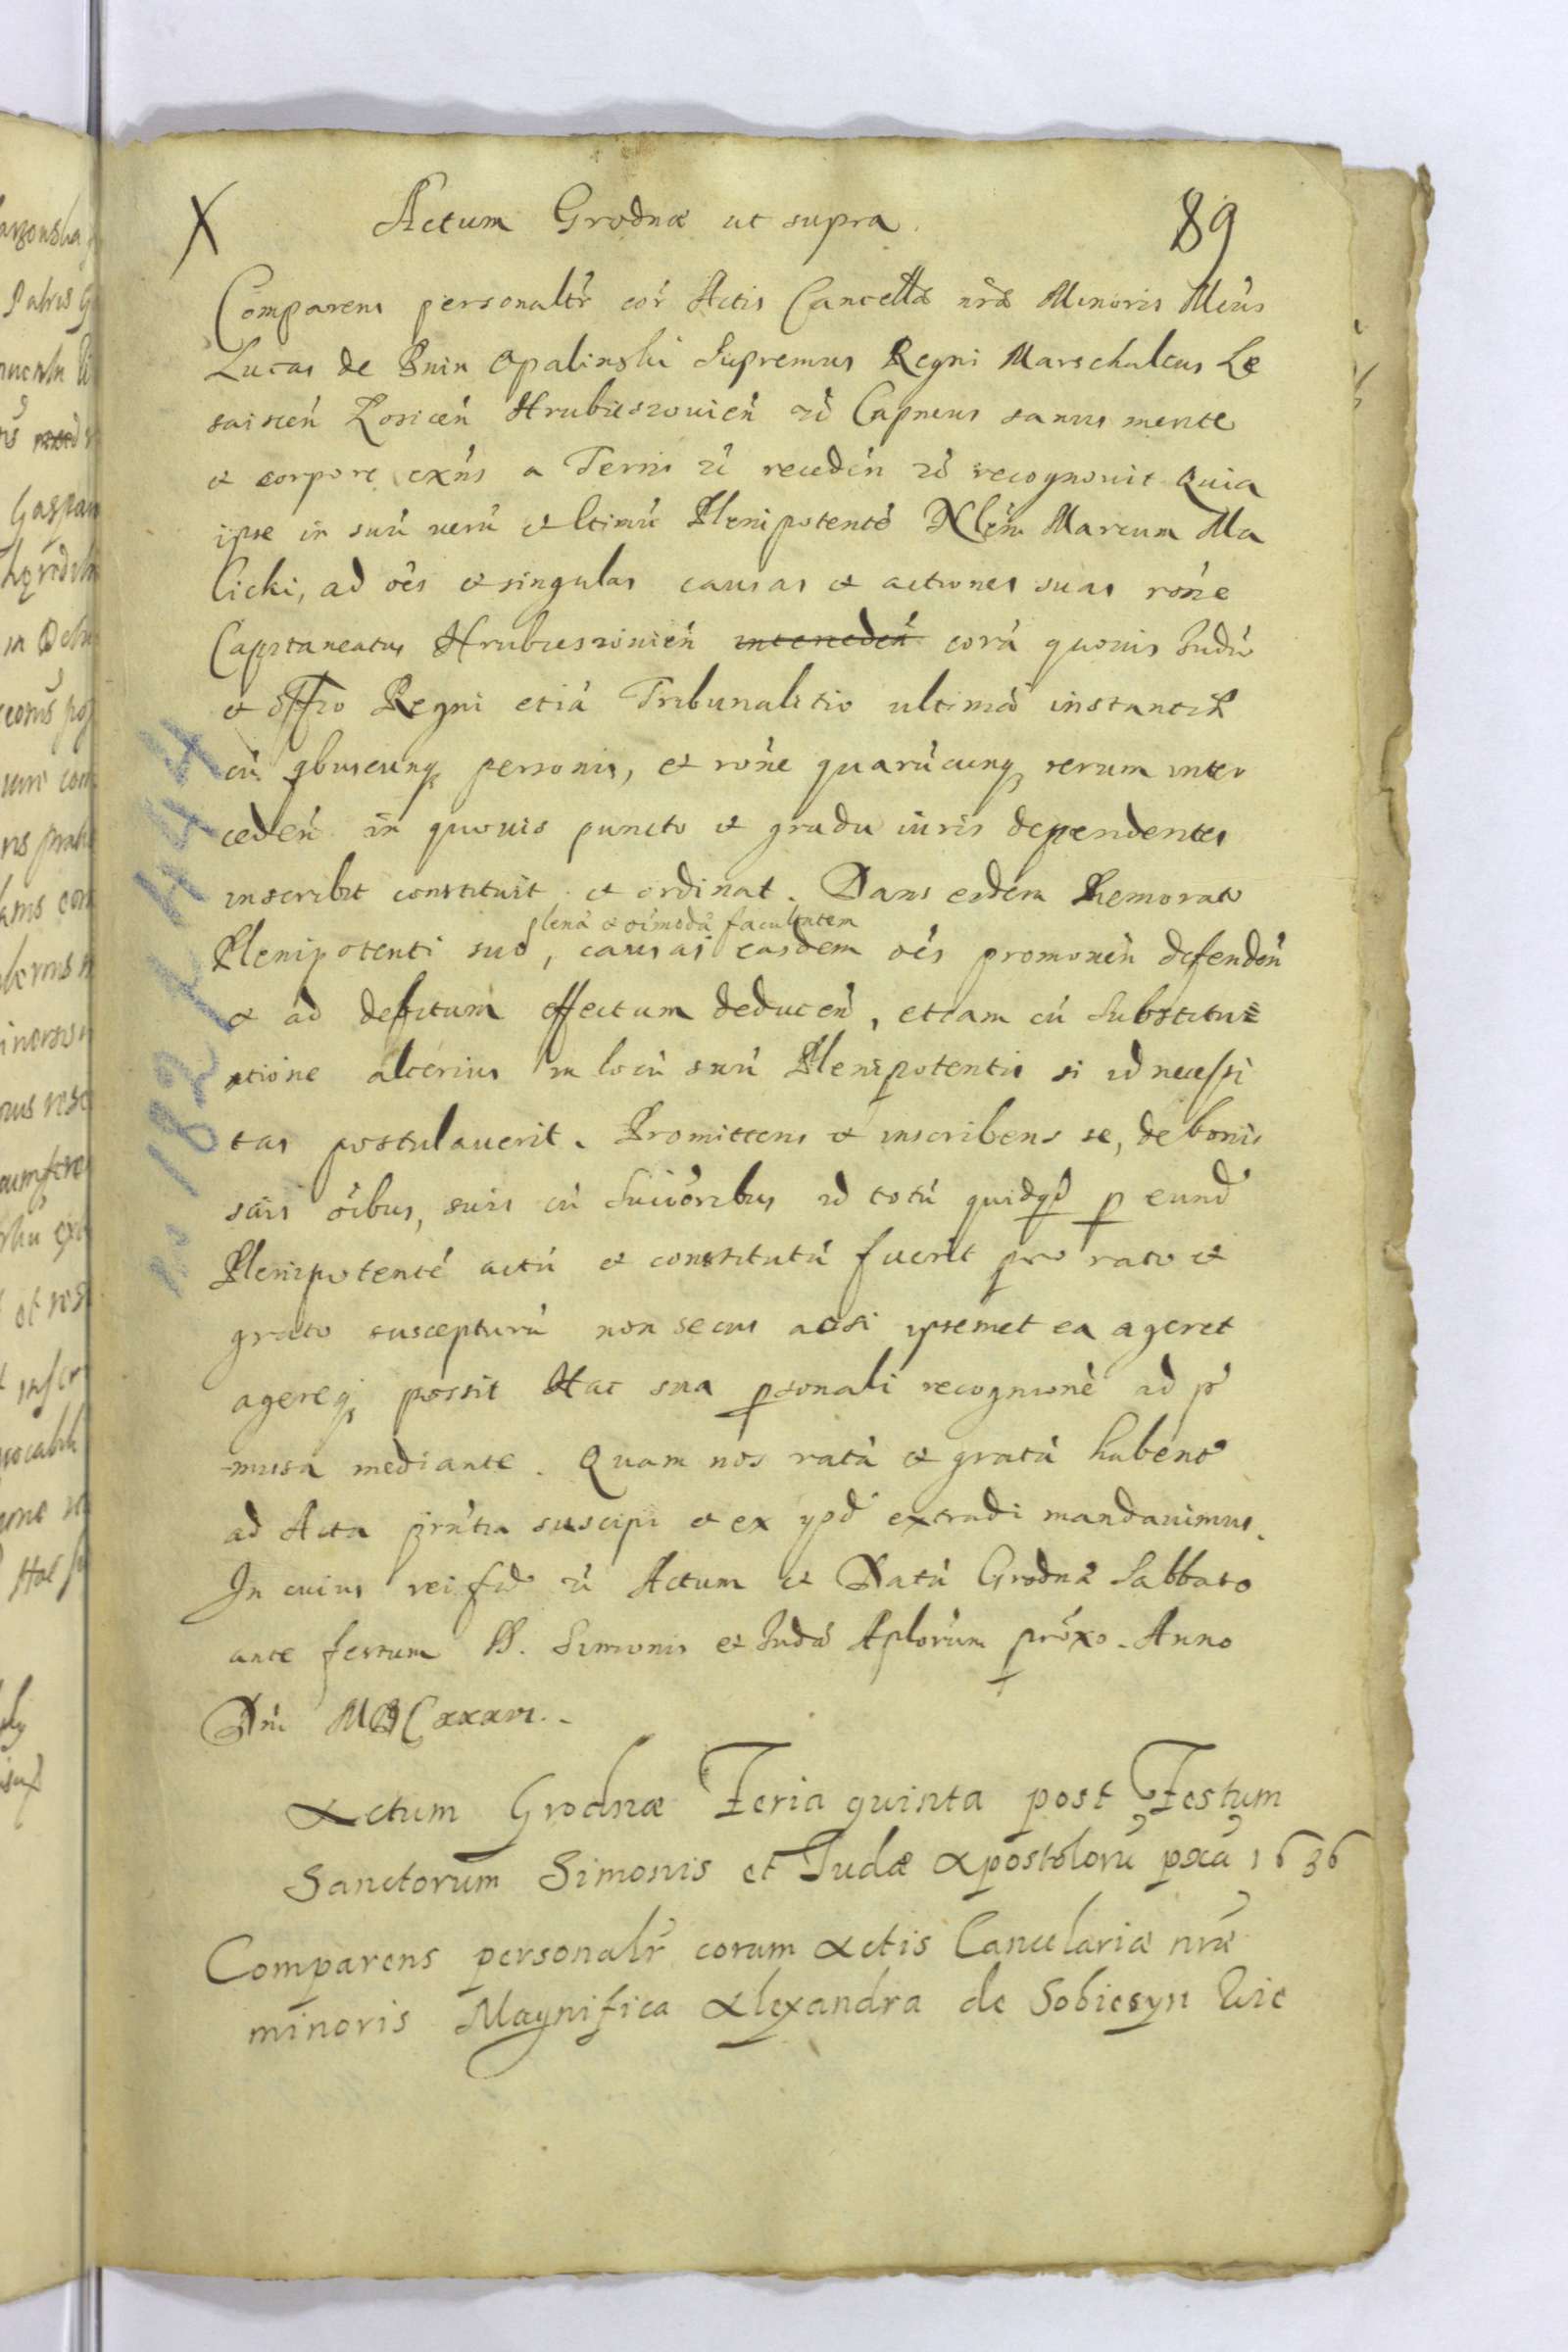 X Actum Grodnæ ut supra. 89
Comparens personalr̃ cor̃ Actis Cancellæ nr̃æ Minoris Mcus
Lucas de Bnin Opalinski Supremus Regni Marschalcus Le
saiscen̄ Łosicen̄ Hrubieszouien̄ Capneus sanus mente
et corpore exn̄s a Terris recedēn recognouit Quia
ipse in suū uerū et ltimū Plenipotentē Nlēm Marcum Ma
licki, ad oēs et singulas causas et actiones suas rōne
Capitaneatus Hrubieszouien̄ intercedēn corā quouis Judū
et offio Regni etiā Tribunalitio ultimæ instantiæ
cū qbuscunq personis, et rōne quarūcunq rerum inter
cedēn in quouis puncto et gradu iuris dependentes
inscribit constituit et ordinat. Dans eidem Memorato
plenā et oīmodā facultatem
Plenipotenti suo, causas easdem oēs promouēn defendēn
et ad debitum effectum deducēn, etiam cū Substitu=
atione alterius in locū suū Plenipotentis si id necessi
tas postulauerit. Promittens et inscribens se, de bonis
suis oībus, suis cū Succōribus id totū quidqd p eund
Plenipotentē actū et constitutū fuerit pro rato et
grato suscepturū non secus acsi ipsemet ea ageret
agereq possit Hac sua psonali recognionē ad p
missa mediante. Quam nos ratā et gratā habent
ad Acta prn̄tia suscipi et ex ypd extradi mandauimus.
In cuius rei fid Actum et Datū Grodnæ Sabbato
ante festum SS. Simonis et Judæ Aplorum prōxo. Anno
Dni MDCxxxvi.
Actum Grodnæ Feria quinta post Festum
Sanctorum Simonis et Judæ Apostolorū pxā 1636
Comparens personalr̃ coram Actis Cancelariæ nr̃æ
minoris Magnifica Alexandra de Sobiesyn Wie